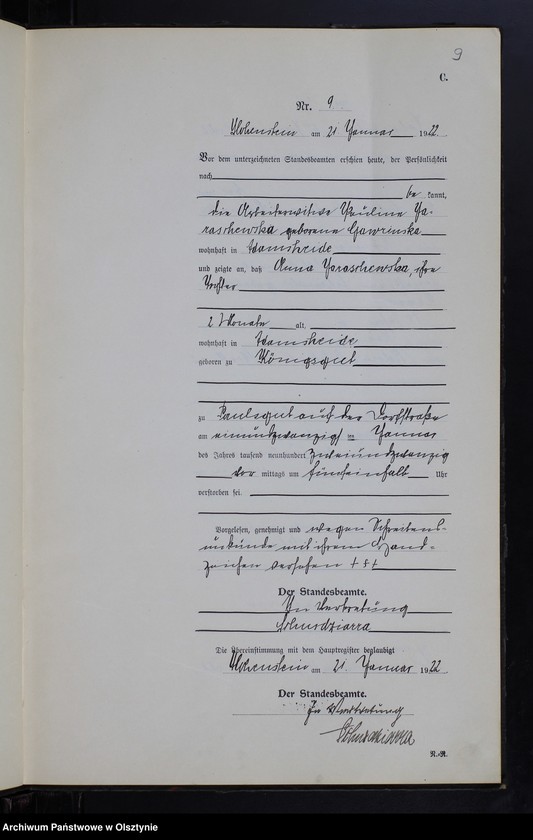 9
C.
Nr. 9
Hohenstein am 21 Januar 1922
Vor dem unterzeichneten Standesbeamten erschien heute, der Persönlichkeit
nach
be kannt,
die Arbeiterwitwe Pauline Ja-
raschewska geborene Gawrinska
wohnhaft in Adamsheide
und zeigte an, daß Anna Jaraschewska, ihre
Tochter
2 Monate alt,
wohnhaft in Adamsheide
geboren zu Königsgut
zu Paulsgut auf der Dorfstraße
am einundzwanzigsten Januar
des Jahres tausend neunhundert zweiundzwanzig
vor mittags um fünfeinhalb Uhr
verstorben sei.
Vorgelesen, genehmigt und wegen Schreibens-
unkunde mit ihrem Hand-
zeichen versehen † † †
Der Standesbeamte.
In Vertretung
Die Übereinstimmung mit dem Hauptregister beglaubigt
Hohenstein am 21. Januar 1922
Der Standesbeamte.
In Vertretung
N.-R.
Archiwum Państwowe w Olsztynie